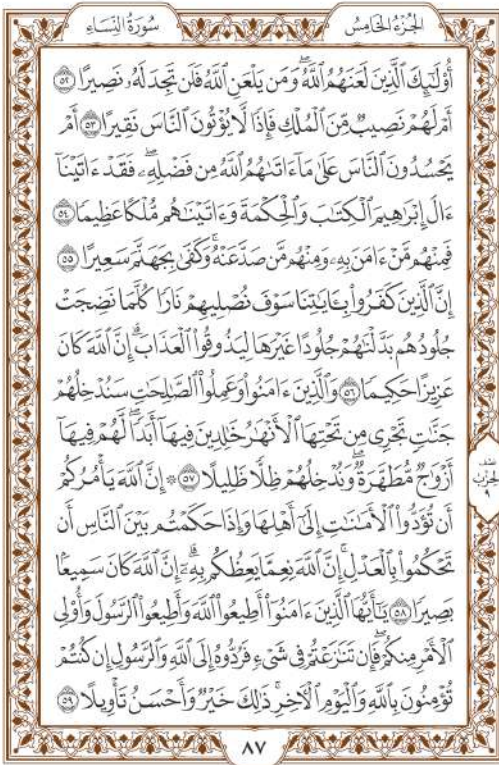 سُورَةُ النِّسَاءِ
الجُزْءُ الخَامِسُ
أُوْلَٰٓئِكَ ٱلَّذِينَ لَعَنَهُمُ ٱللَّهُۖ وَمَن يَلْعَنِ ٱللَّهُ فَلَن تَجِدَ لَهُۥ نَصِيرًا ٥٢
أَمْ لَهُمْ نَصِيبٌ مِّنَ ٱلْمُلْكِ فَإِذًا لَّا يُؤْتُونَ ٱلنَّاسَ نَقِيرًا ٥٣ أَمْ
يَحْسُدُونَ ٱلنَّاسَ عَلَىٰ مَآ ءَاتَىٰهُمُ ٱللَّهُ مِن فَضْلِهِۦۖ فَقَدْ ءَاتَيْنَآ
ءَالَ إِبْرَٰهِيمَ ٱلْكِتَٰبَ وَٱلْحِكْمَةَ وَءَاتَيْنَٰهُم مُّلْكًا عَظِيمًا ٥٤
فَمِنْهُم مَّنْ ءَامَنَ بِهِۦ وَمِنْهُم مَّن صَدَّ عَنْهُۚ وَكَفَىٰ بِجَهَنَّمَ سَعِيرًا ٥٥
إِنَّ ٱلَّذِينَ كَفَرُواْ بِـَٔايَٰتِنَا سَوْفَ نُصْلِيهِمْ نَارًا كُلَّمَا نَضِجَتْ
جُلُودُهُم بَدَّلْنَٰهُمْ جُلُودًا غَيْرَهَا لِيَذُوقُواْ ٱلْعَذَابَۗ إِنَّ ٱللَّهَ كَانَ
عَزِيزًا حَكِيمًا ٥٦ وَٱلَّذِينَ ءَامَنُواْ وَعَمِلُواْ ٱلصَّٰلِحَٰتِ سَنُدْخِلُهُمْ
جَنَّٰتٍ تَجْرِى مِن تَحْتِهَا ٱلْأَنْهَٰرُ خَٰلِدِينَ فِيهَآ أَبَدًاۖ لَّهُمْ فِيهَآ
أَزْوَٰجٌ مُّطَهَّرَةٌۖ وَنُدْخِلُهُمْ ظِلًّا ظَلِيلًا ٥٧ ۞ إِنَّ ٱللَّهَ يَأْمُرُكُمْ
أَن تُؤَدُّواْ ٱلْأَمَٰنَٰتِ إِلَىٰٓ أَهْلِهَا وَإِذَا حَكَمْتُم بَيْنَ ٱلنَّاسِ أَن
تَحْكُمُواْ بِٱلْعَدْلِۚ إِنَّ ٱللَّهَ نِعِمَّا يَعِظُكُم بِهِۦٓۗ إِنَّ ٱللَّهَ كَانَ سَمِيعًۢا
بَصِيرًا ٥٨ يَٰٓأَيُّهَا ٱلَّذِينَ ءَامَنُوٓاْ أَطِيعُواْ ٱللَّهَ وَأَطِيعُواْ ٱلرَّسُولَ وَأُوْلِى
ٱلْأَمْرِ مِنكُمْۖ فَإِن تَنَٰزَعْتُمْ فِى شَىْءٍ فَرُدُّوهُ إِلَى ٱللَّهِ وَٱلرَّسُولِ إِن كُنتُمْ
تُؤْمِنُونَ بِٱللَّهِ وَٱلْيَوْمِ ٱلْأَخِرِۚ ذَٰلِكَ خَيْرٌ وَأَحْسَنُ تَأْوِيلًا ٥٩
نصف
الحزب
٩
٨٧